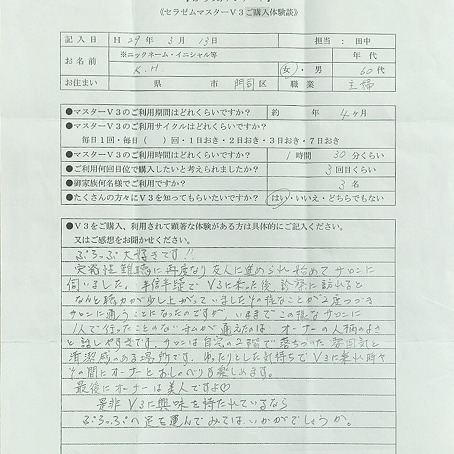 《セラゼムマスターV3ご購入体験談》
記入日 H 29年 3月 13日 担当：田中
お名前 ※ニックネーム・イニシャル等 K.H 女・男 年代 60代
お住まい 県 市 門司区 職業 主婦
●マスターV3のご利用期間はどれくらいですか？ 約 年 4ヶ月
●マスターV3のご利用サイクルはどれくらいですか？
毎日1回・毎日（ ）回・1日おき・2日おき・3日おき・7日おき
●マスターV3のご利用時間はどれくらいですか？ 1時間 30分くらい
●ご利用何回目位で購入したいと考えられましたか？ 3回目くらい
●御家族何名様でご利用ですか？ 3名
●たくさんの方々にV3を知ってもらいたいですか？ はい・いいえ・どちらでもない
●V3をご購入、利用されて顕著な体験がある方は具体的にご記入ください。
又はご感想をお聞かせください。
ぷろっぷ大好きです!!
突発性難聴に再度なり友人に進められ始めてサロンに
伺いました。半信半疑でV3に乗った後 診察に訪れると
なんと聴力が少し上がっていました その様なことが2度つづき
サロンに通うことになったのですが、いままでこの様なサロンに
1人で行ったことのない私が通えたのは、オーナーの人柄のよさ
と話しやすさです。サロンは自宅の2階で落ちついた雰囲気と
清潔感のある場所です。ゆったりとした気持ちでV3に乗れ時々
その間にオーナーとおしゃべりも楽しめます。
最後にオーナーは美人ですよ♡
是非V3に興味を持たれているなら
ぷろっぷの足を運んでみてはいかがでしょうか。